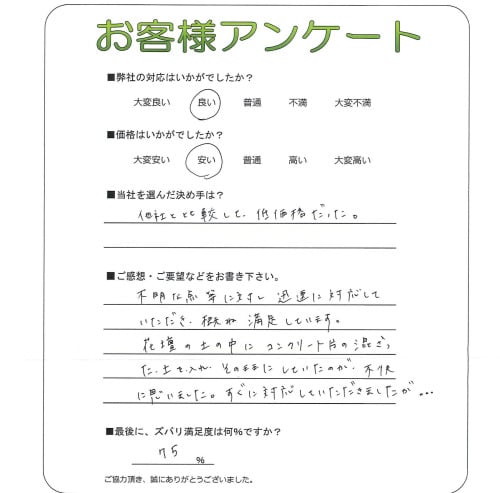 お客様アンケート
■弊社の対応はいかがでしたか？
大変良い 良い 普通 不満 大変不満
■価格はいかがでしたか？
大変安い 安い 普通 高い 大変高い
■当社を選んだ決め手は？
他社と比較して、低価格だった。
■ご感想・ご要望などをお書き下さい。
不明な点等に対し迅速に対応して
いただき、概ね満足しています。
花壇の土の中にコンクリート片の混ざっ
た土を入れ、そのままにしていたのが、不快
に思いました。すぐに対応していただきましたが…
■最後に、ズバリ満足度は何％ですか？
75 ％
ご協力頂き、誠にありがとうございました。